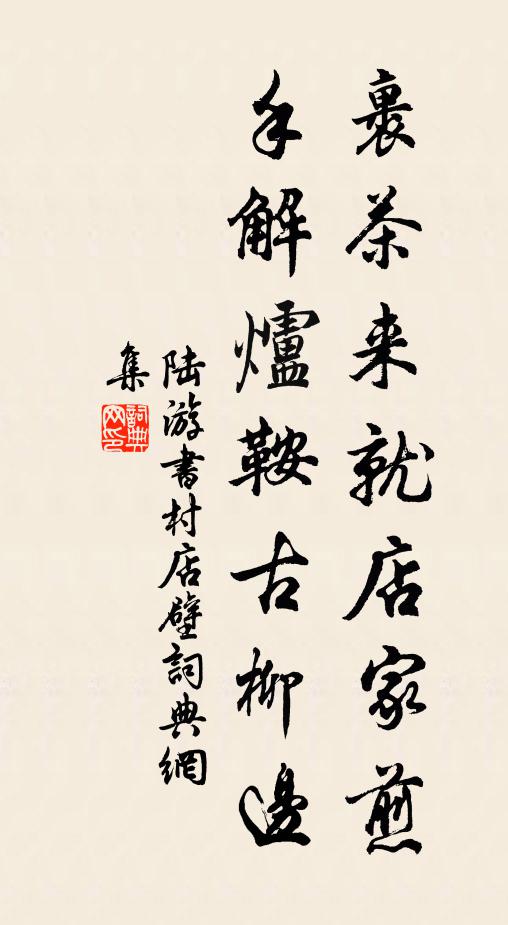 裹茶来就店家煎
手解爐鞍古柳邊
陆游書村店壁詞典網
集
詞典網印